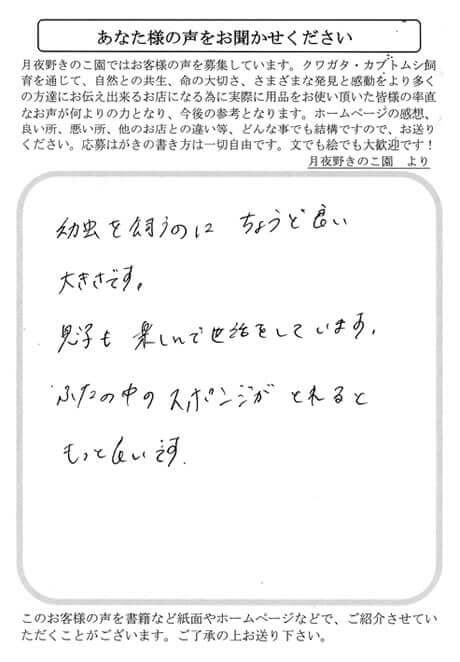 あなた様の声をお聞かせください
月夜野きのこ園ではお客様の声を募集しています。クワガタ・カブトムシ飼
育を通じて、自然との共生、命の大切さ、さまざまな発見と感動をより多く
の方達にお伝え出来るお店になる為に実際に用品をお使い頂いた皆様の率直
なお声が何よりの力となり、今後の参考となります。ホームページの感想、
良い所、悪い所、他のお店との違い等、どんな事でも結構ですので、お送り
ください。応募はがきの書き方は一切自由です。文でも絵でも大歓迎です！
月夜野きのこ園　より
幼虫を飼うのに ちょうど良い
大きさです。
息子も 楽しんで世話をしています。
ふたの中のスポンジが とれると
もっと良いです.
このお客様の声を書籍など紙面やホームページなどで、ご紹介させてい
ただくことがございます。ご了承の上お送り下さい。